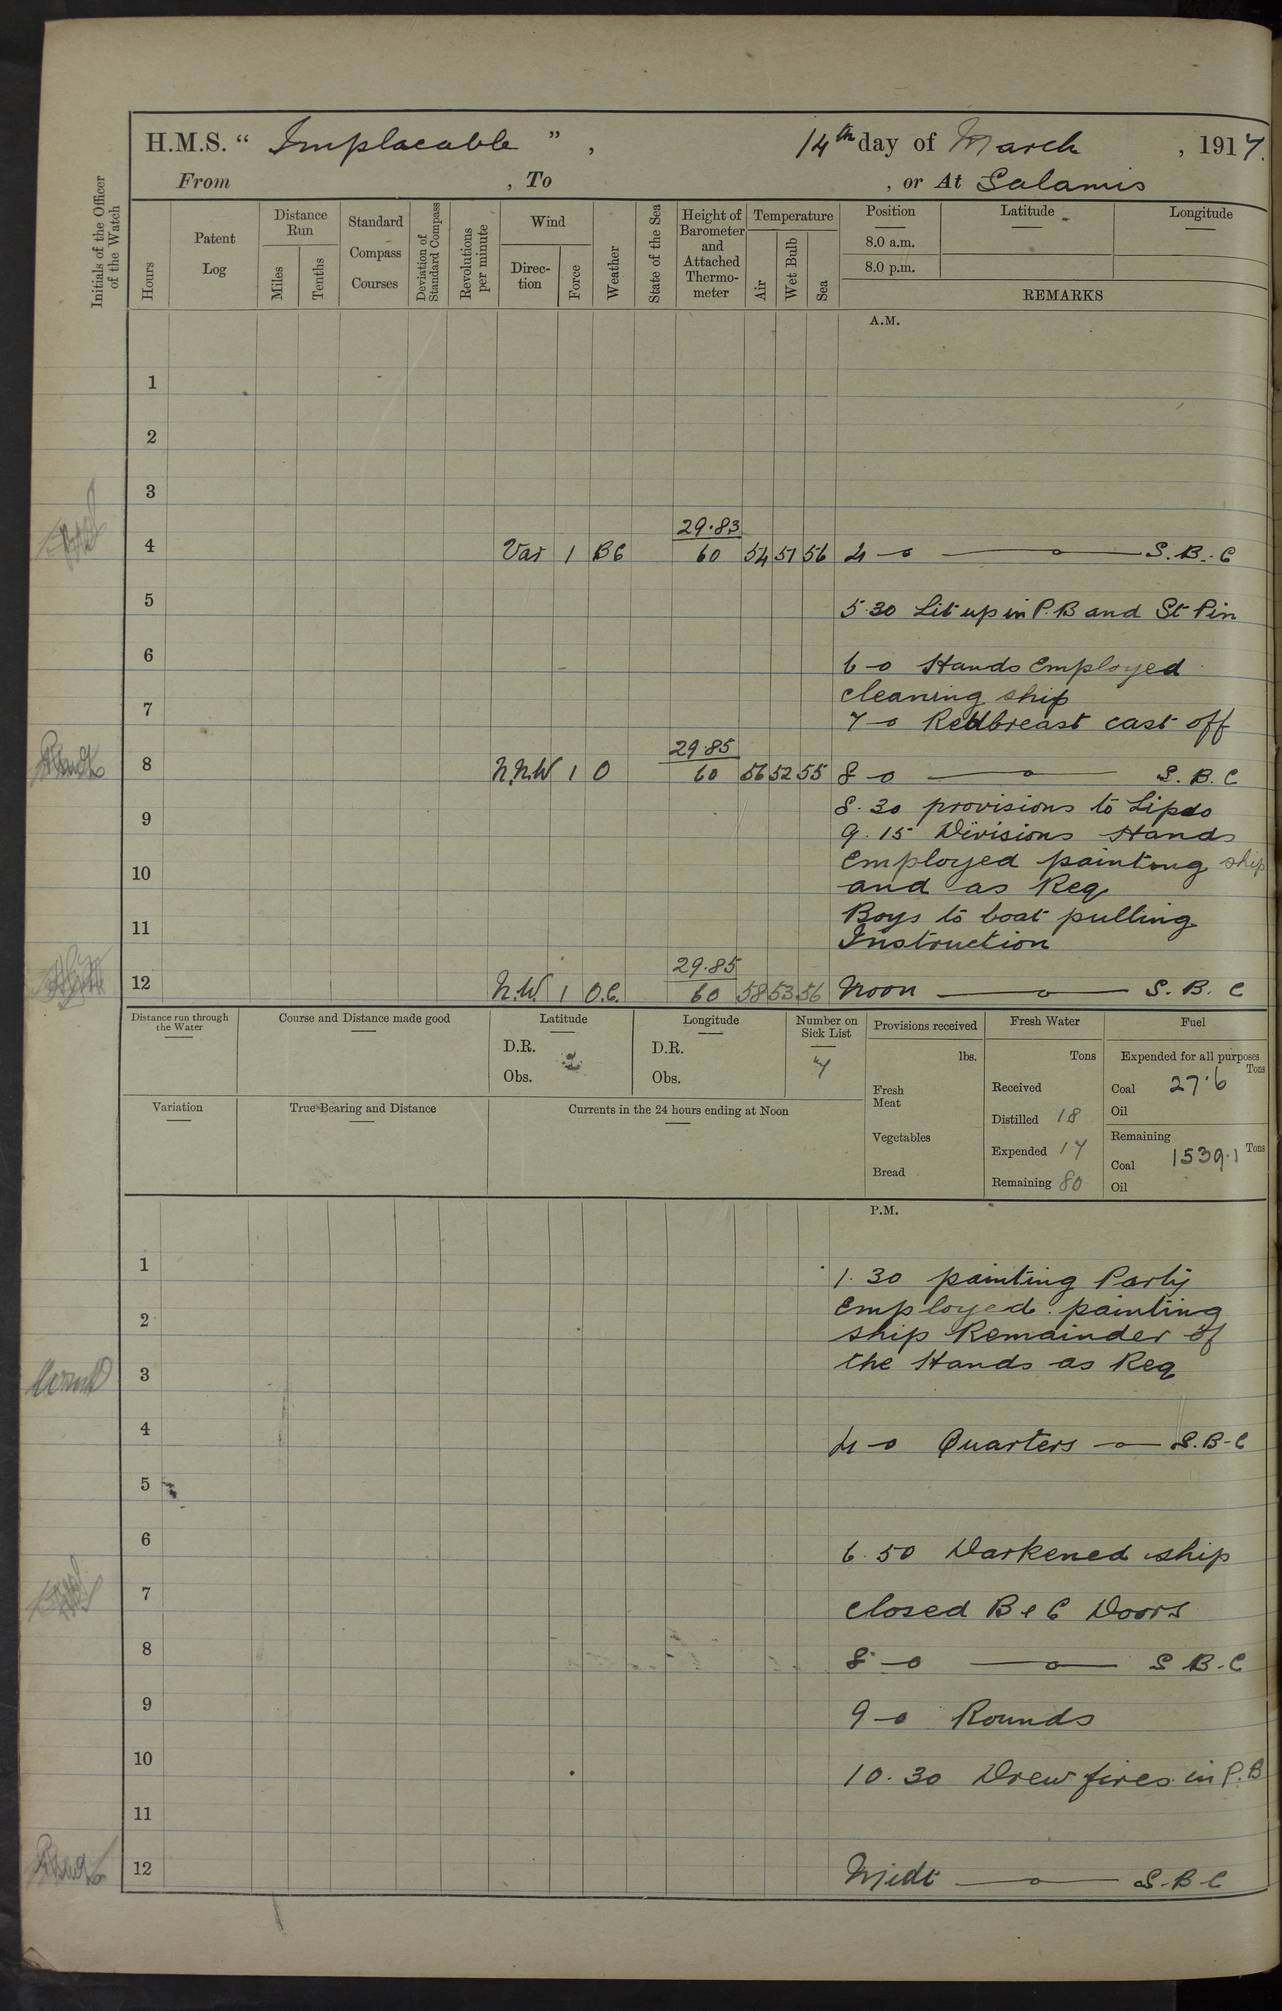 H.M.S. “ Implacable ” , 14th day of March , 1917.
From , To , or At Salamis
Initials of the Officer of the Watch
Hours
Patent Log
Distance Run
Miles
Tenths
Standard Compass Courses
Deviation of Standard Compass
Revolutions per minute
Wind
Direction
Force
Weather
State of the Sea
Height of Barometer and Attached Thermometer
Temperature
Air
Wet Bulb
Sea
Position
8.0 a.m.
8.0 p.m.
Latitude
Longitude
REMARKS
A.M.
1
2
3
29.83
4 Var 1 BC 60 54 51 56 4-0 S.B.C
5 5.30 Lit up in P.B and St Pin
6 6-0 Hands Employed
cleaning ship
7 7-0 Redbreast cast off
29.85
8 N.N.W 1 O 60 56 52 55 8-0 S.B.C
8.30 provisions to Lipso
9 9.15 Divisions Hands
Employed painting ship
10 and as Req
Boys to boat pulling
11 Instruction
29.85
12 N.W. 1 O.C. 60 58 53 56 Noon S.B.C
Distance run through the Water
Course and Distance made good
Latitude
D.R.
Obs.
Longitude
D.R.
Obs.
Number on Sick List
4
Provisions received
lbs.
Fresh Meat
Vegetables
Bread
Fresh Water
Tons
Received
Distilled 18
Expended 17
Remaining 80
Fuel
Expended for all purposes
Tons
Coal 27.6
Oil
Remaining
Tons
Coal 1539.1
Oil
Variation
True Bearing and Distance
Currents in the 24 hours ending at Noon
P.M.
1 1.30 painting Party
Employed painting
2 ship Remainder of
3 the Hands as Req
4 4-0 Quarters S.B.C
5
6 6.50 Darkened ship
7 closed B & C Doors
8 8-0 S.B.C
9 9-0 Rounds
10 10.30 Drew fires in P.B
11
12 Midt S.B.C